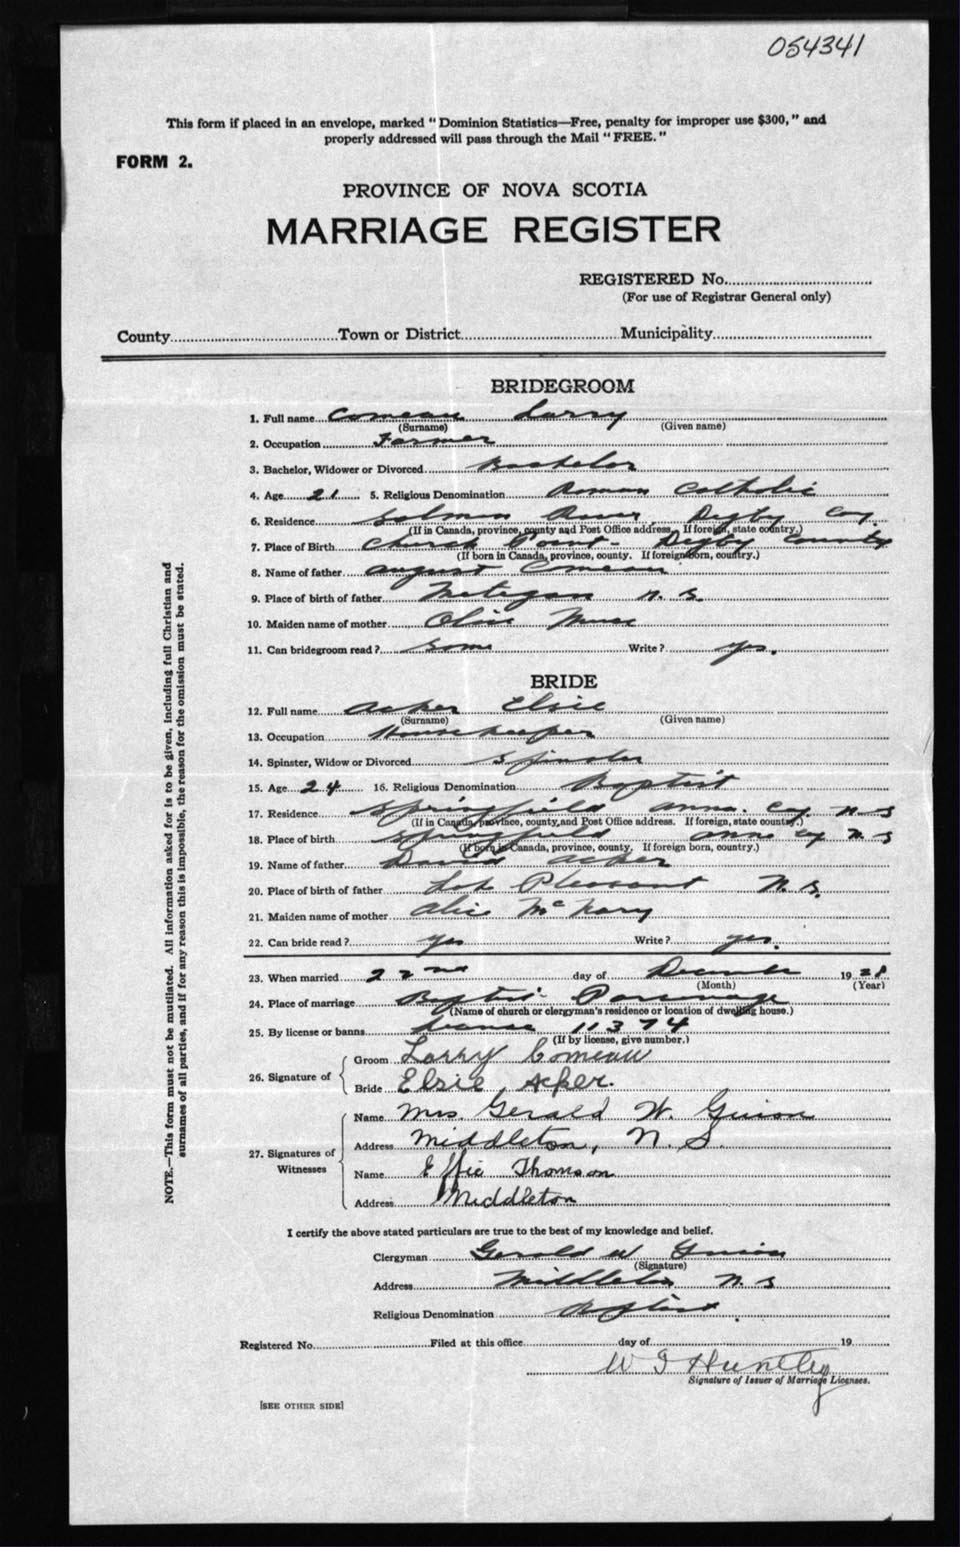 054341
This form if placed in an envelope, marked "Dominion Statistics—Free, penalty for improper use $300," and
properly addressed will pass through the Mail "FREE."
FORM 2.
PROVINCE OF NOVA SCOTIA
MARRIAGE REGISTER
REGISTERED No.
(For use of Registrar General only)
County Town or District Municipality
BRIDEGROOM
1. Full name Comeau Larry
(Surname) (Given name)
2. Occupation Farmer
3. Bachelor, Widower or Divorced Bachelor
4. Age 21 5. Religious Denomination Roman Catholic
6. Residence Salmon River Digby Coy.
(If in Canada, province, county and Post Office address. If foreign, state country.)
7. Place of Birth Church Point - Digby County
(If born in Canada, province, county. If foreign born, country.)
8. Name of father August Comeau
9. Place of birth of father Metegan N. S.
10. Maiden name of mother Olive
11. Can bridegroom read? Some Write? yes.
BRIDE
12. Full name Acker Elsie
(Surname) (Given name)
13. Occupation Housekeeper
14. Spinster, Widow or Divorced Spinster
15. Age 24 16. Religious Denomination Baptist
17. Residence Springfield Anna. Coy. N. S
(If in Canada, province, county, and Post Office address. If foreign, state country.)
18. Place of birth Springfield Anna Coy N. S
(If born in Canada, province, county. If foreign born, country.)
19. Name of father David Acker
20. Place of birth of father Pleasant N. S.
21. Maiden name of mother Alice
22. Can bride read? yes Write? yes.
23. When married 22nd day of December 1928
(Month) (Year)
24. Place of marriage Baptist Parsonage
(Name of church or clergyman's residence or location of dwelling house.)
25. By license or banns License 11374
(If by license, give number.)
26. Signature of
Groom Larry Comeau
Bride Elsie Acker.
27. Signatures of Witnesses
Name Mrs Gerald W. Guion
Address Middleton, N. S.
Name Effie Thomson
Address Middleton
I certify the above stated particulars are true to the best of my knowledge and belief.
Clergyman Gerald W Guion
(Signature)
Address Middleton N. S
Religious Denomination Baptist.
Registered No. Filed at this office day of 19
W J Huntley
Signature of Issuer of Marriage Licenses.
[SEE OTHER SIDE]
NOTE.—This form must not be mutilated. All information asked for is to be given, including full Christian and
surnames of all parties, and if for any reason this is impossible, the reason for the omission must be stated.